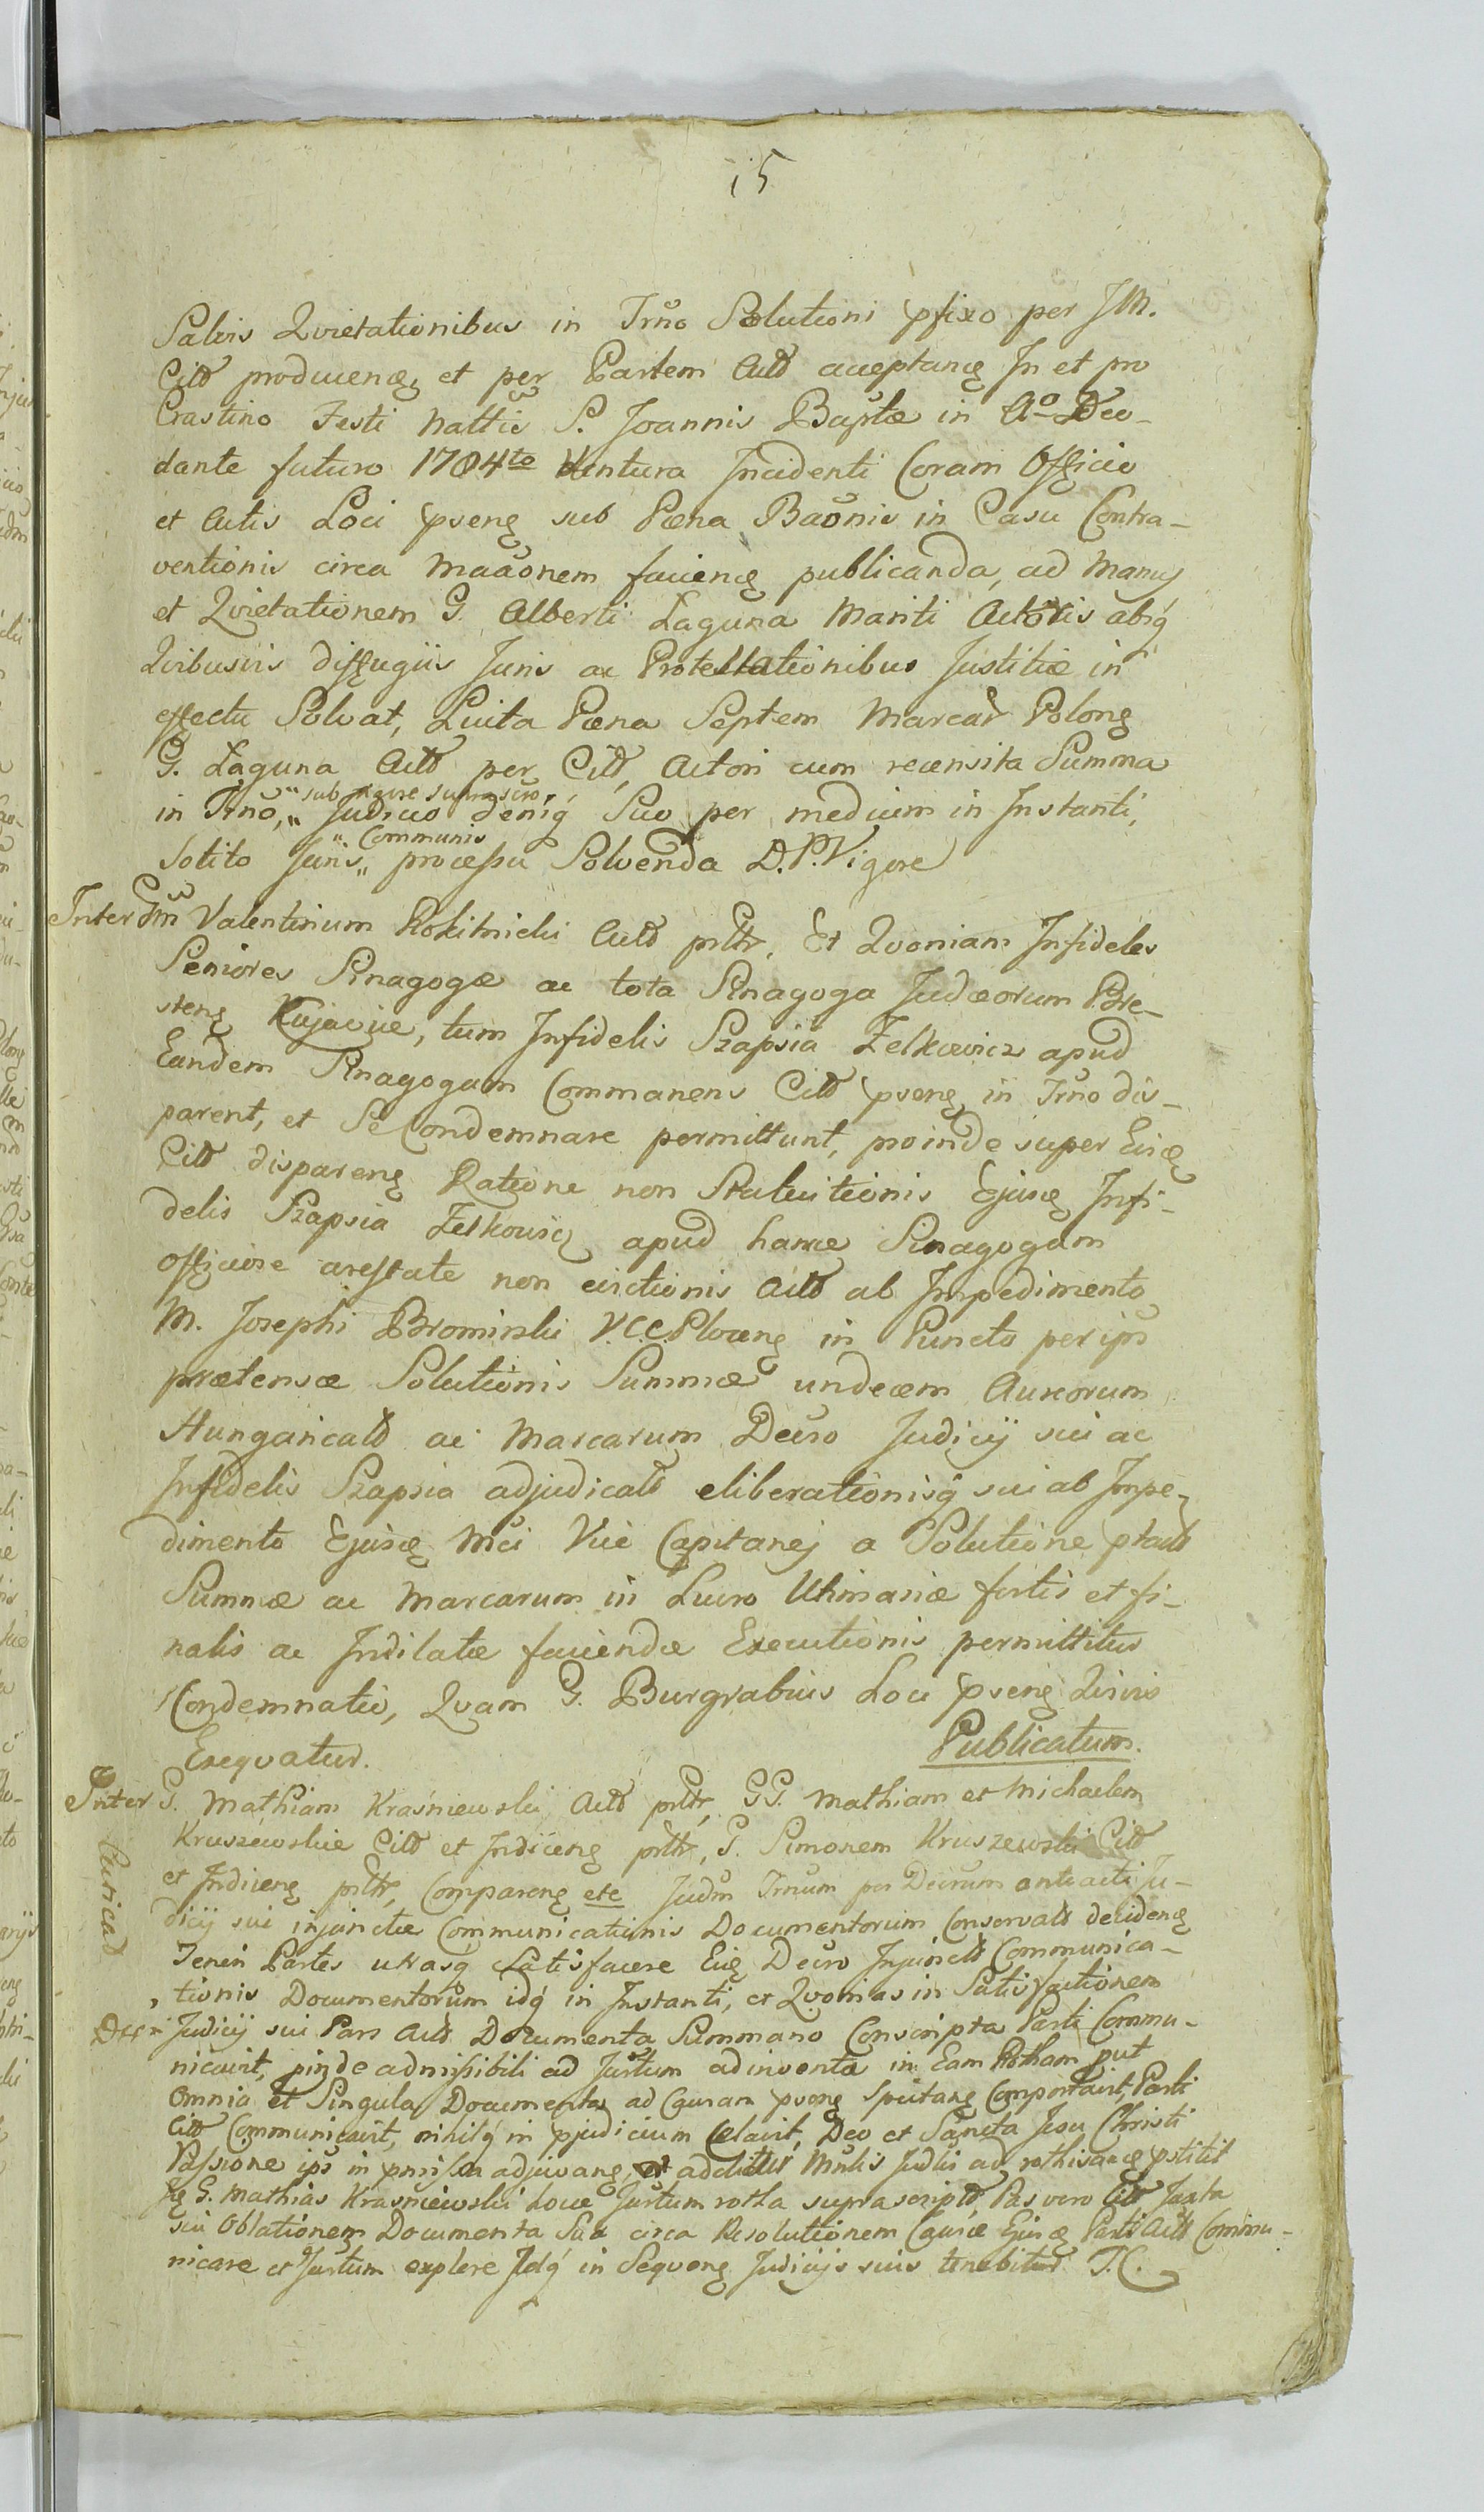 15
Salvis Qvietationibus in Trño Solutioni pfixo per JM.
Citõ producenę, et per Partem Actõ acceptanę In et pro
Crastino Festi Nattis S. Joannis Baptæ in Aº Deo-
dante futuro 1784to Ventura Incidenti Coram Officio
et Actis Loci psenę sub Pæna Baõnis in Casu Contra-
ventionis circa Maaõnem faciendę publicanda, ad Manus
et Qvietationem G. Alberti Laguna Mariti Actoris absq́
Qvibusvis diffugiis Juris ac Protestationibus Justitiæ in
effectu Solvat, Luita Pæna Septem Marcar Polonę
G. Laguna Actõ per Citõ, Actori cum recensita Summa
„ sub rigore suprascro,
in Trño, „ Judicio deniq́ Suo per medium in Instanti,
„ Communis
Solito Juris „ processu Solvenda D. P. Vigore
Inter Gm Valentinum Rokitnicki Actõ prltr, Et Qvoniam Infideles
Seniores Sinagogæ ac tota Sinagoga Judæorum Bre-
stenę Kujaviæ, tum Infidelis Szapsia Zelkowicz apud
Eandem Sinagogam Commanens Citõ psenę, in Trño dis-
parent, et Se Condemnare permittunt, proinde super Eisdę
Citõ disparenę Ratione non Statuitionis Ejusdę Infi-
delis Szapsia Zelkowicz apud hance Sinagogam
officiose arestate non evictionis Actõ ab Impedimento
M. Josephi Bromirski V.C.C. Plocenę in Puncto per ips
prætensæ Solutionis Summæ undecem Aureorum
Hungaricalõ ac Marcarum Decro Judicij sui ac
Infidelis Szapsia adjudicatõ eliberationisq́ sui ab Impe-
dimento Ejusdę Mci Vice Capitanej a Solutione ptactõ
Summæ ac Marcarum in Lucro Ultimariæ fortis et fi-
nalis ac Indilatæ faciendæ Executionis permittitur
Condemnatio, Qvam G. Burgrabius Loci psenę Qvivis
Exeqvatur. Publicatum.
Inter G. Mathiam Kraśniewski Actõ prltr, GG. Mathiam et Michaelem
Kruszewskie Citõ et Indicenę prltr, G. Simonem Kruszewski Citõ
et Indicenę prltr, Comparenę etc Judm Trnum per Decrum anteacti Ju-
dicij sui injunctæ Communicationis Documentorum Conservatõ decidenę
Teneri Partes utrasq́ Satisfacere Eidę Decro Injunctõ Communica-
tionis Documentorum idq́ in Instanti, et Qvonias in Satisfactionem
Judicij sui Pars Actõ Documenta Summario Conscripta Parti Commu-
nicavit, pinde admissibili ad Jurtum adinventa in Eam Rotham put
Omnia et Singula Documenta ad Causam psenę Spectanę Comportavit, Parti
Citõ Communicavit, nihilq́ in pjudicium Celavit, Deo et Sancta Jesu Christi
Passione ips in pmissa adjuvanę, adcitur Mnlis Judlis ad rothisanę pstitit
G. Mathias Kraśniewski hoce Jurtum rotha suprascriptõ, Pars vero Citõ Juxta
sui Oblationem Documenta Sua circa Resolutionem Causæ Ejusdę Parti Actõ Commu-
nicare et Jurtum explere Idq́ in Seqvenę Judicijs suis tenebitur T. C.